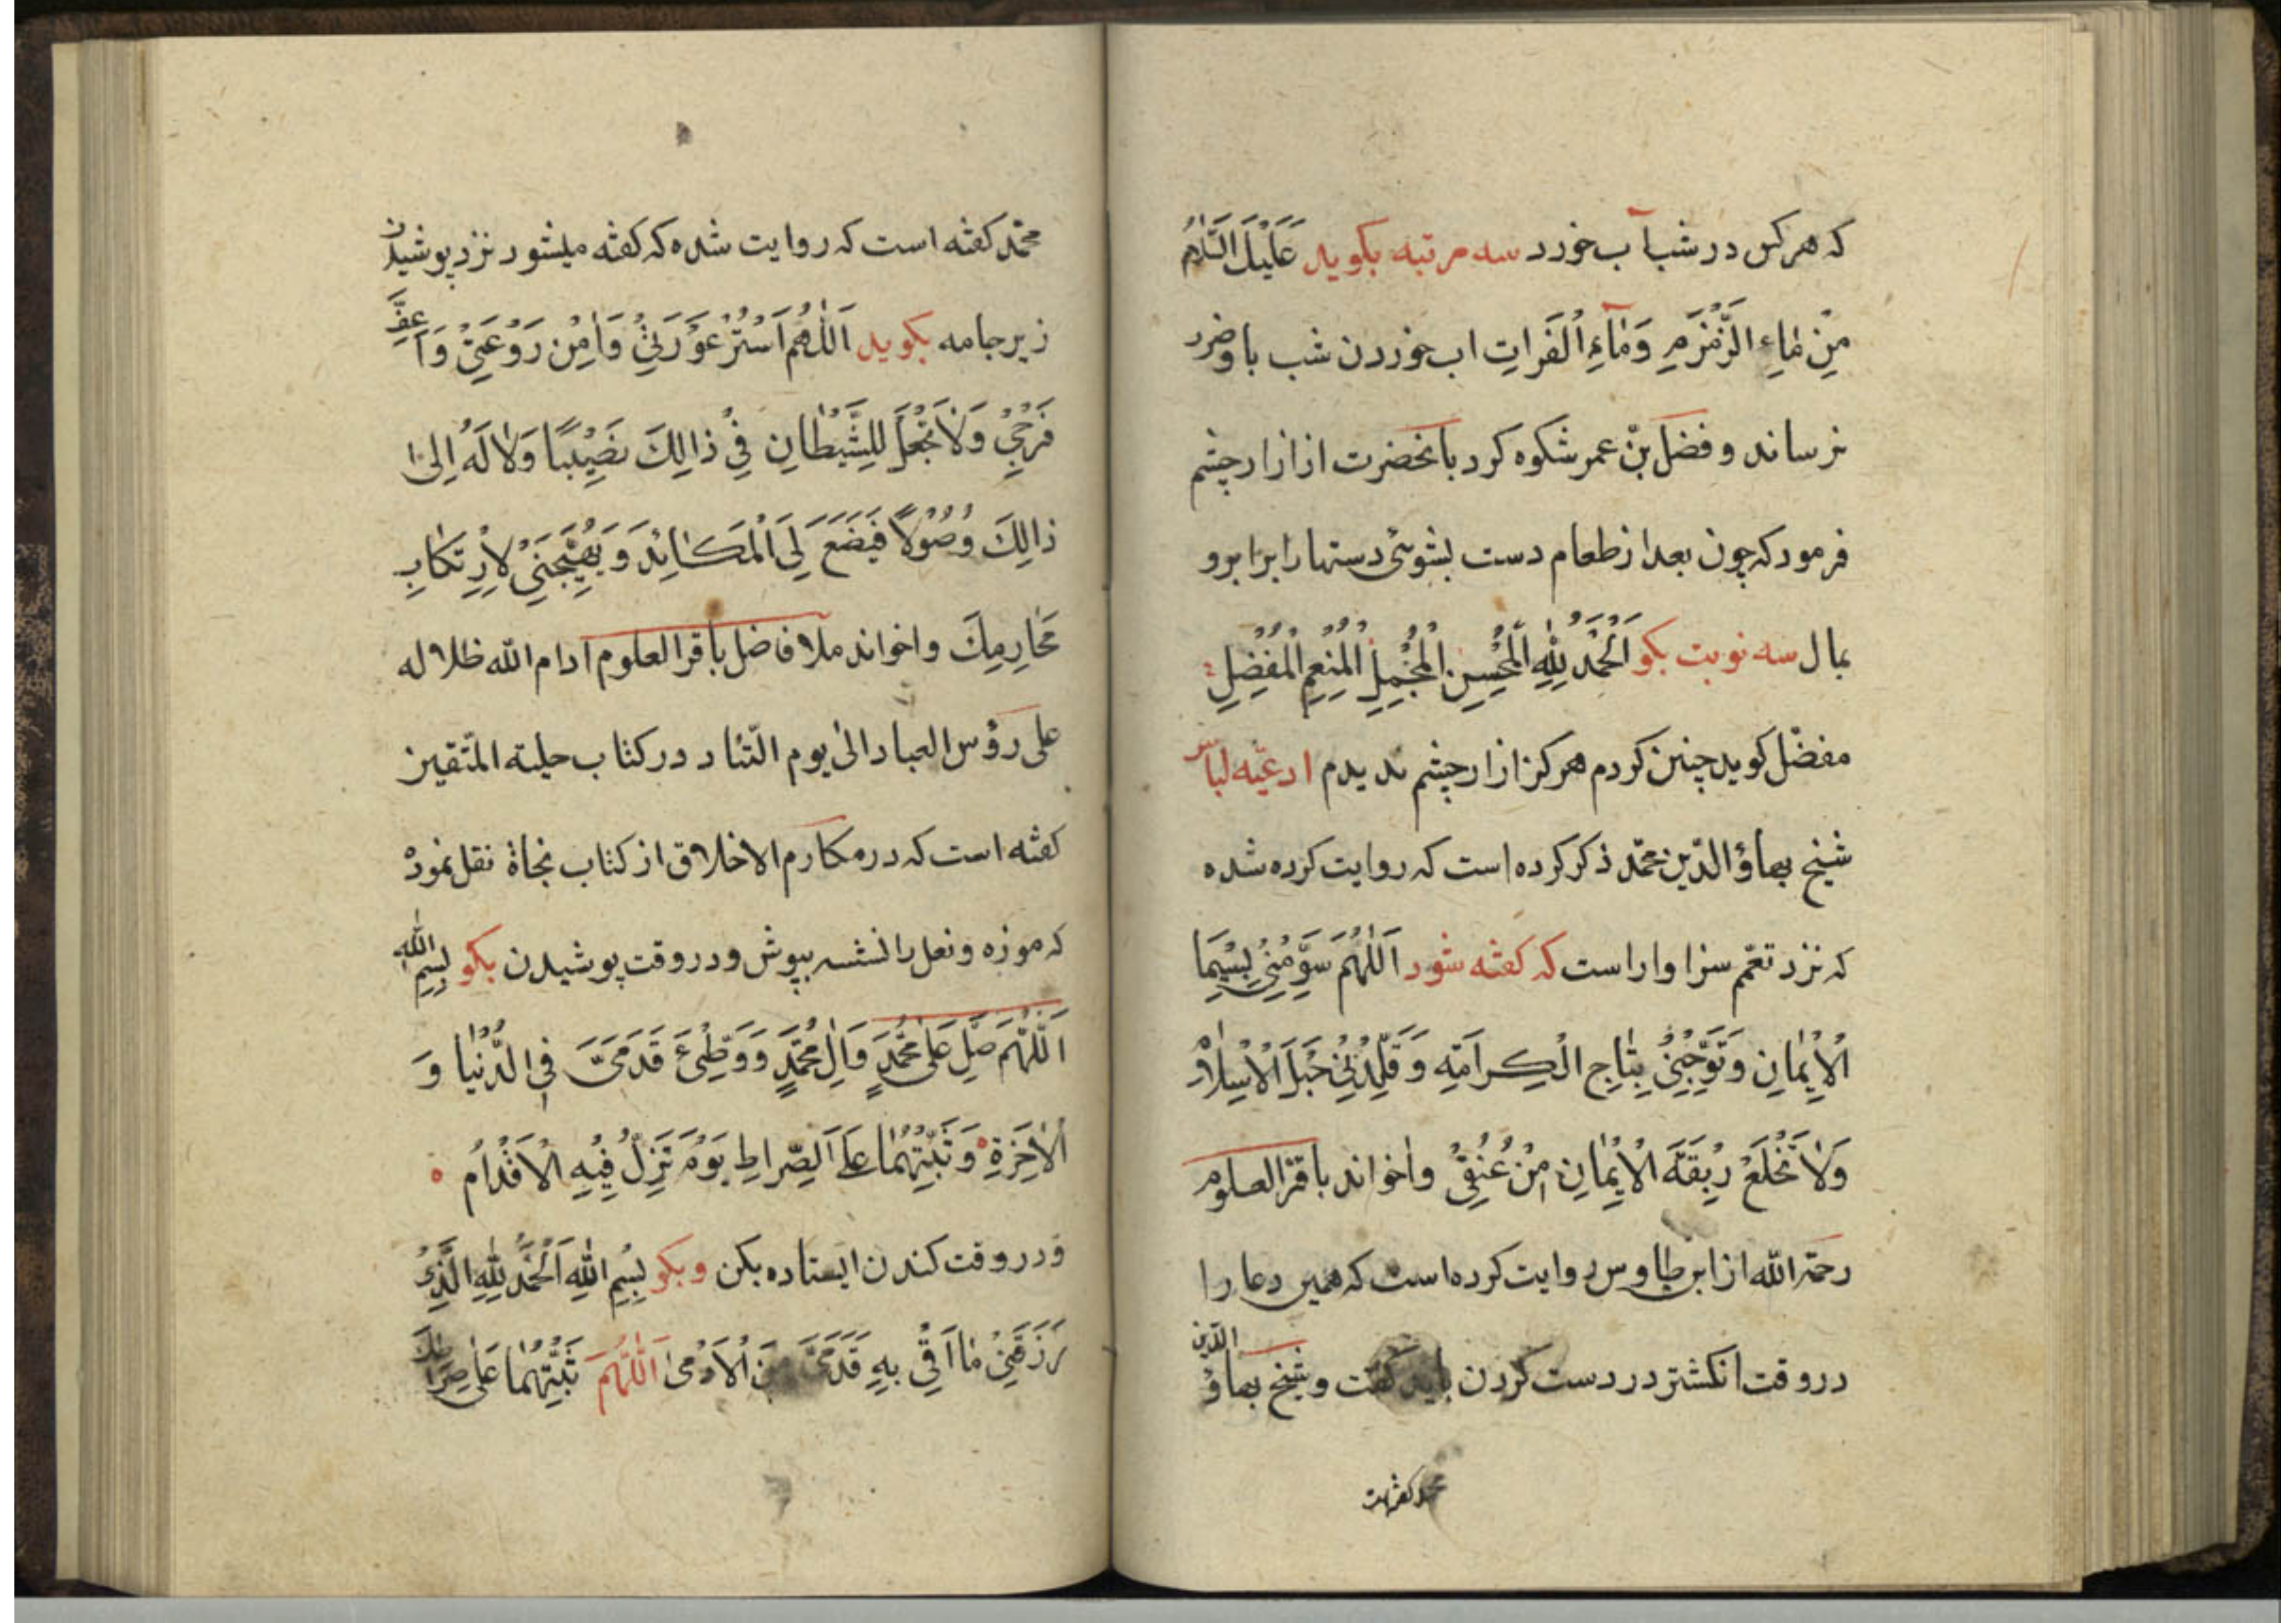 که هرکس در شب آب خورد سه مرتبه بکوید عَلَیْكَ السَّلامُ
مِنْ مٰاءِ الزَّمْزَمِ وَمٰآءِ الْفُرَاتِ اب خوردن شب باو ضرر
نرساند و فضل بنْ عمر شکوه کرد بانحضرت از ازار چشم
فرمود که چون بعد از طعام دست بشوئی دستها را برابرو
بمال سه نوبت بکو اَلْحَمْدُ لِلّٰهِ الْمُحْسِنِ الْمُجْمِلِ الْمُنْعِمِ الْمُفْضِلِ
مفضّل کوید چنین کردم هرکز ازار چشم ندیدم ادعیّه لباس
شیخ بهاؤ الدّین محمّد ذکر کرده است که روایت کرده شده
که نزد تعمّم سزاوار است که کفته شود اَللّٰهُمَّ سَوِّمْنِیْ بِسِیْمَآ
الْاِیْمٰانِ وَتَوِّجْنِیْ بِتٰاجِ الْکِرامَتِهِ وَقَلِّدْنِیْ حَبْلَ الْاِسْلاٰمِ
وَلاٰ تَخْلَعْ رِبْقَةَ الْاِیْمٰانِ مِنْ عُنُقِیْ واخواند باقر العلوم
رحمة الله از ابن طاوس روایت کرده است که همین دعا را
در وقت انکشتر در دست کردن باید کفت و شیخ بهاؤ الدین
محمد کفته است
محمّد کفته است که روایت شده که کفته میشود نزد پوشیدن
زیر جامه بکوید اَللّٰهُمَّ اسْتُرْ عَوْرَتِیْ وَاٰمِنْ رَوْعَتِیْ وَاَعِفَّ
فَرْجِیْ وَلاٰ تَجْعَلْ لِلشَّیْطٰانِ فِیْ ذالِكَ نَصِیْبًا وَلاٰ لَهُ اِلیٰ
ذالِكَ وُصُوْلاً فَیَضَعَ لِیَ الْمَکٰائِدَ وَیُهَیِّجَنِیْ لِاِرْتِکٰابِ
مَحٰارِمِكَ واخواند ملا فاضل باقر العلوم ادام الله ظلاله
علی رؤس العباد الیٰ یوم التّناد در کتاب حلیته المتّقین
کفته است که در مکارم الاخلاق از کتاب نجاة نقل نموده
که موزه و نعل را نشسته بپوش و در وقت پوشیدن بکو بِسْمِ اللّٰهِ
اَللّٰهُمَّ صَلِّ عَلیٰ مُحَمَّدٍ وَاٰلِ مُحَمَّدٍ وَوَطِّئْ قَدَمَیَّ فِی الدُّنْیٰا وَ
الْاٰخِرَةِ وَثَبِّتْهُمٰا عَلَی الصِّراطِ یَوْمَ تَزِلُّ فِیْهِ الْاَقْدٰامُ
ودر وقت کندن ایستاده بکن وبکو بِسْمِ اللّٰهِ اَلْحَمْدُ لِلّٰهِ الَّذِیْ
رَزَقَنِیْ مٰا اَقِیْ بِهِ قَدَمَیَّ مِنَ الْاَذیٰ اَللّٰهُمَّ ثَبِّتْهُمٰا عَلیٰ صِرٰاطِكَ